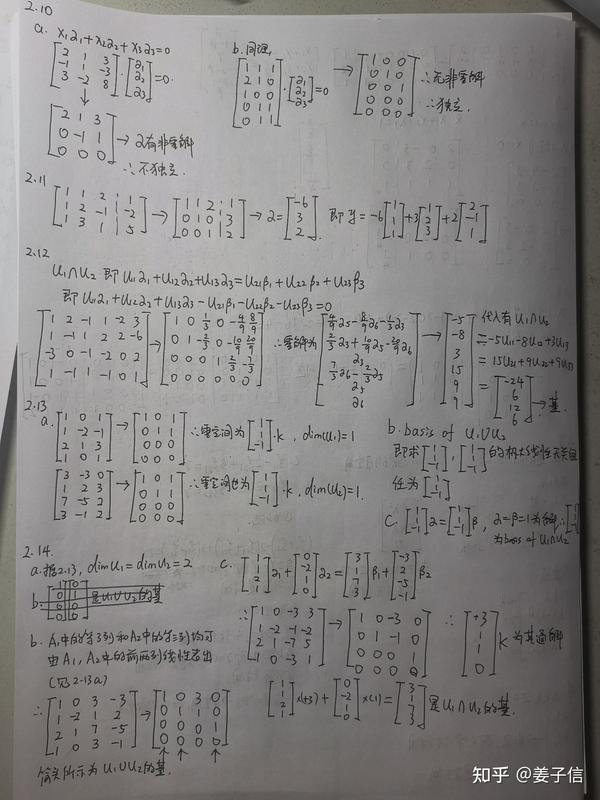 2.10
a. x₁α₁+x₂α₂+x₃α₃=0
[2 1 3; 1 -1 -3; 3 -2 8]·[α₁; α₂; α₃]=0.
↓
[2 1 3; 0 -1 1; 0 0 0] → α有非零解
∴不独立.
b. 同理,
[1 1 1; 2 1 0; 1 0 0; 0 1 1; 0 1 1]·[α₁; α₂; α₃]=0 → [1 0 0; 0 1 0; 0 0 1; 0 0 0; 0 0 0] ∴无非零解
∴独立.
2.11
[1 1 2 1; 1 2 -1 -2; 1 3 1 5] → [1 1 2 1; 0 1 0 3; 0 0 1 2] → α=[-6; 3; 2]. 即 y=-6[1; 1; 1]+3[1; 2; 3]+2[2; -1; 1]
2.12
U₁∩U₂ 即 U₁₁α₁+U₁₂α₂+U₁₃α₃=U₂₁β₁+U₂₂β₂+U₂₃β₃
即 U₁₁α₁+U₁₂α₂+U₁₃α₃-U₂₁β₁-U₂₂β₂-U₂₃β₃=0
[1 2 -1 1 -2 3; 1 -1 1 2 2 -6; -3 0 -1 -2 0 2; 1 -1 1 -1 0 1] → [1 0 1/3 0 -4/9 8/9; 0 1 -2/3 0 -10/9 20/9; 0 0 0 1 2/3 -7/3; 0 0 0 0 0 0] ∴零解为 → [-5; -8; 3; 15; 9; 9] 代入有 U₁∩U₂
=-5U₁₁-8U₁₂+3U₁₃
=15U₂₁+9U₂₂+9U₂₃
=[-24; 6; 12; 6] → 基.
2.13
a. [1 0 1; 1 -2 -1; 2 1 3; 1 0 1] → [1 0 1; 0 1 1; 0 0 0; 0 0 0] ∴零空间为[1; 1; -1]·k, dim(U₁)=1
[3 -3 0; 1 2 3; 7 -5 2; 3 -1 2] → [1 0 1; 0 1 1; 0 0 0; 0 0 0] ∴零空间也为[1; 1; -1]·k, dim(U₂)=1.
b. basis of U₁∪U₂
即求[1; 1; -1], [1; 1; -1]的极大线性无关组
任为[1; 1; -1]
c. [1; 1; -1]α=[1; 1; -1]β, α=β=1为解∴[1; 1; -1]
为basis of U₁∩U₂
2.14.
a. 据2.13, dimU₁=dimU₂=2
b. A₁中的第3列和A₂中的第三列均可
由A₁,A₂中的前两列线性表出
(见2-13a)
∴[1 0 3 -3; 1 -2 1 2; 2 1 7 -5; 1 0 3 -1] → [1 0 3 0; 0 1 1 0; 0 0 0 1; 0 0 0 0]
↑ ↑ ↑
箭头所示为U₁∪U₂的基.
c. [1; 1; 2; 1]α₁+[0; -2; 1; 0]α₂=[3; 1; 7; 3]β₁+[-3; 2; -5; -1]β₂
∴[1 0 -3 3; 1 -2 -1 -2; 2 1 -7 5; 1 0 -3 1] → [1 0 -3 0; 0 1 -1 0; 0 0 0 1; 0 0 0 0] ∴[+3; 1; 1; 0]k 为其通解
[1; 1; 2; 1]×(+3)+[0; -2; 1; 0]×(1)=[3; 1; 7; 3]是U₁∩U₂的基.
知乎 @姜子信